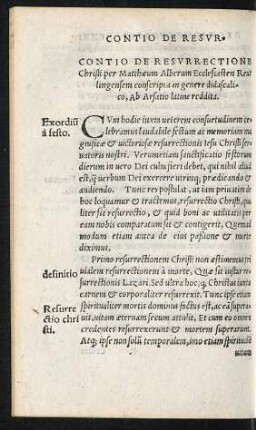 CONTIO DE RESVR-
CONTIO DE RESVRRECTIONE
Christi per Mattheum Alberum Ecclesiasten Reut
lingensem conscripta in genere didascali-
co, Ab Arsatio latine reddita.
Exordiū
à festo.
CVm hodie iuxta ueterem consuetudinem ce
lebramus laudabile festum ac memoriam ma
gnificæ & uictoriosæ resurrectionis Iesu Christi ser
uatoris nostri. Verumtamen sanctificatio festorum
dierum in uero Dei cultu fieri debet, qui nihil aliud
est, q̃ uerbum Dei exercere utrinq; prædicando &
audiendo. Tunc res postulat, ut iam priuatim de
hoc loquamur & tractemus, resurrectio Christi, qua
liter sit resurrectio, & quid boni ac utilitatis per
eam nobis comparatum sit & contigerit, Quemad
modum etiam antea de eius passione & morte
diximus.
definitio
Primo resurrectionem Christi non æstimemus tri
uialem resurrectionem à morte, Quæ sit iuxta re-
surrectionis Lazari. Sed ultra hoc, q; Christus iuxta
carnem & corporaliter resurrexit. Tunc ipse etiam
Resurre
ctio chri
sti.
spiritualiter mortis dominus factus est, ac eã supera-
uit, uitam æternam secum attulit. Et cum eo omnes
credentes resurrexerunt & mortem superarunt.
Atq; ipse non solũ temporalem, imo etiam spiritualē